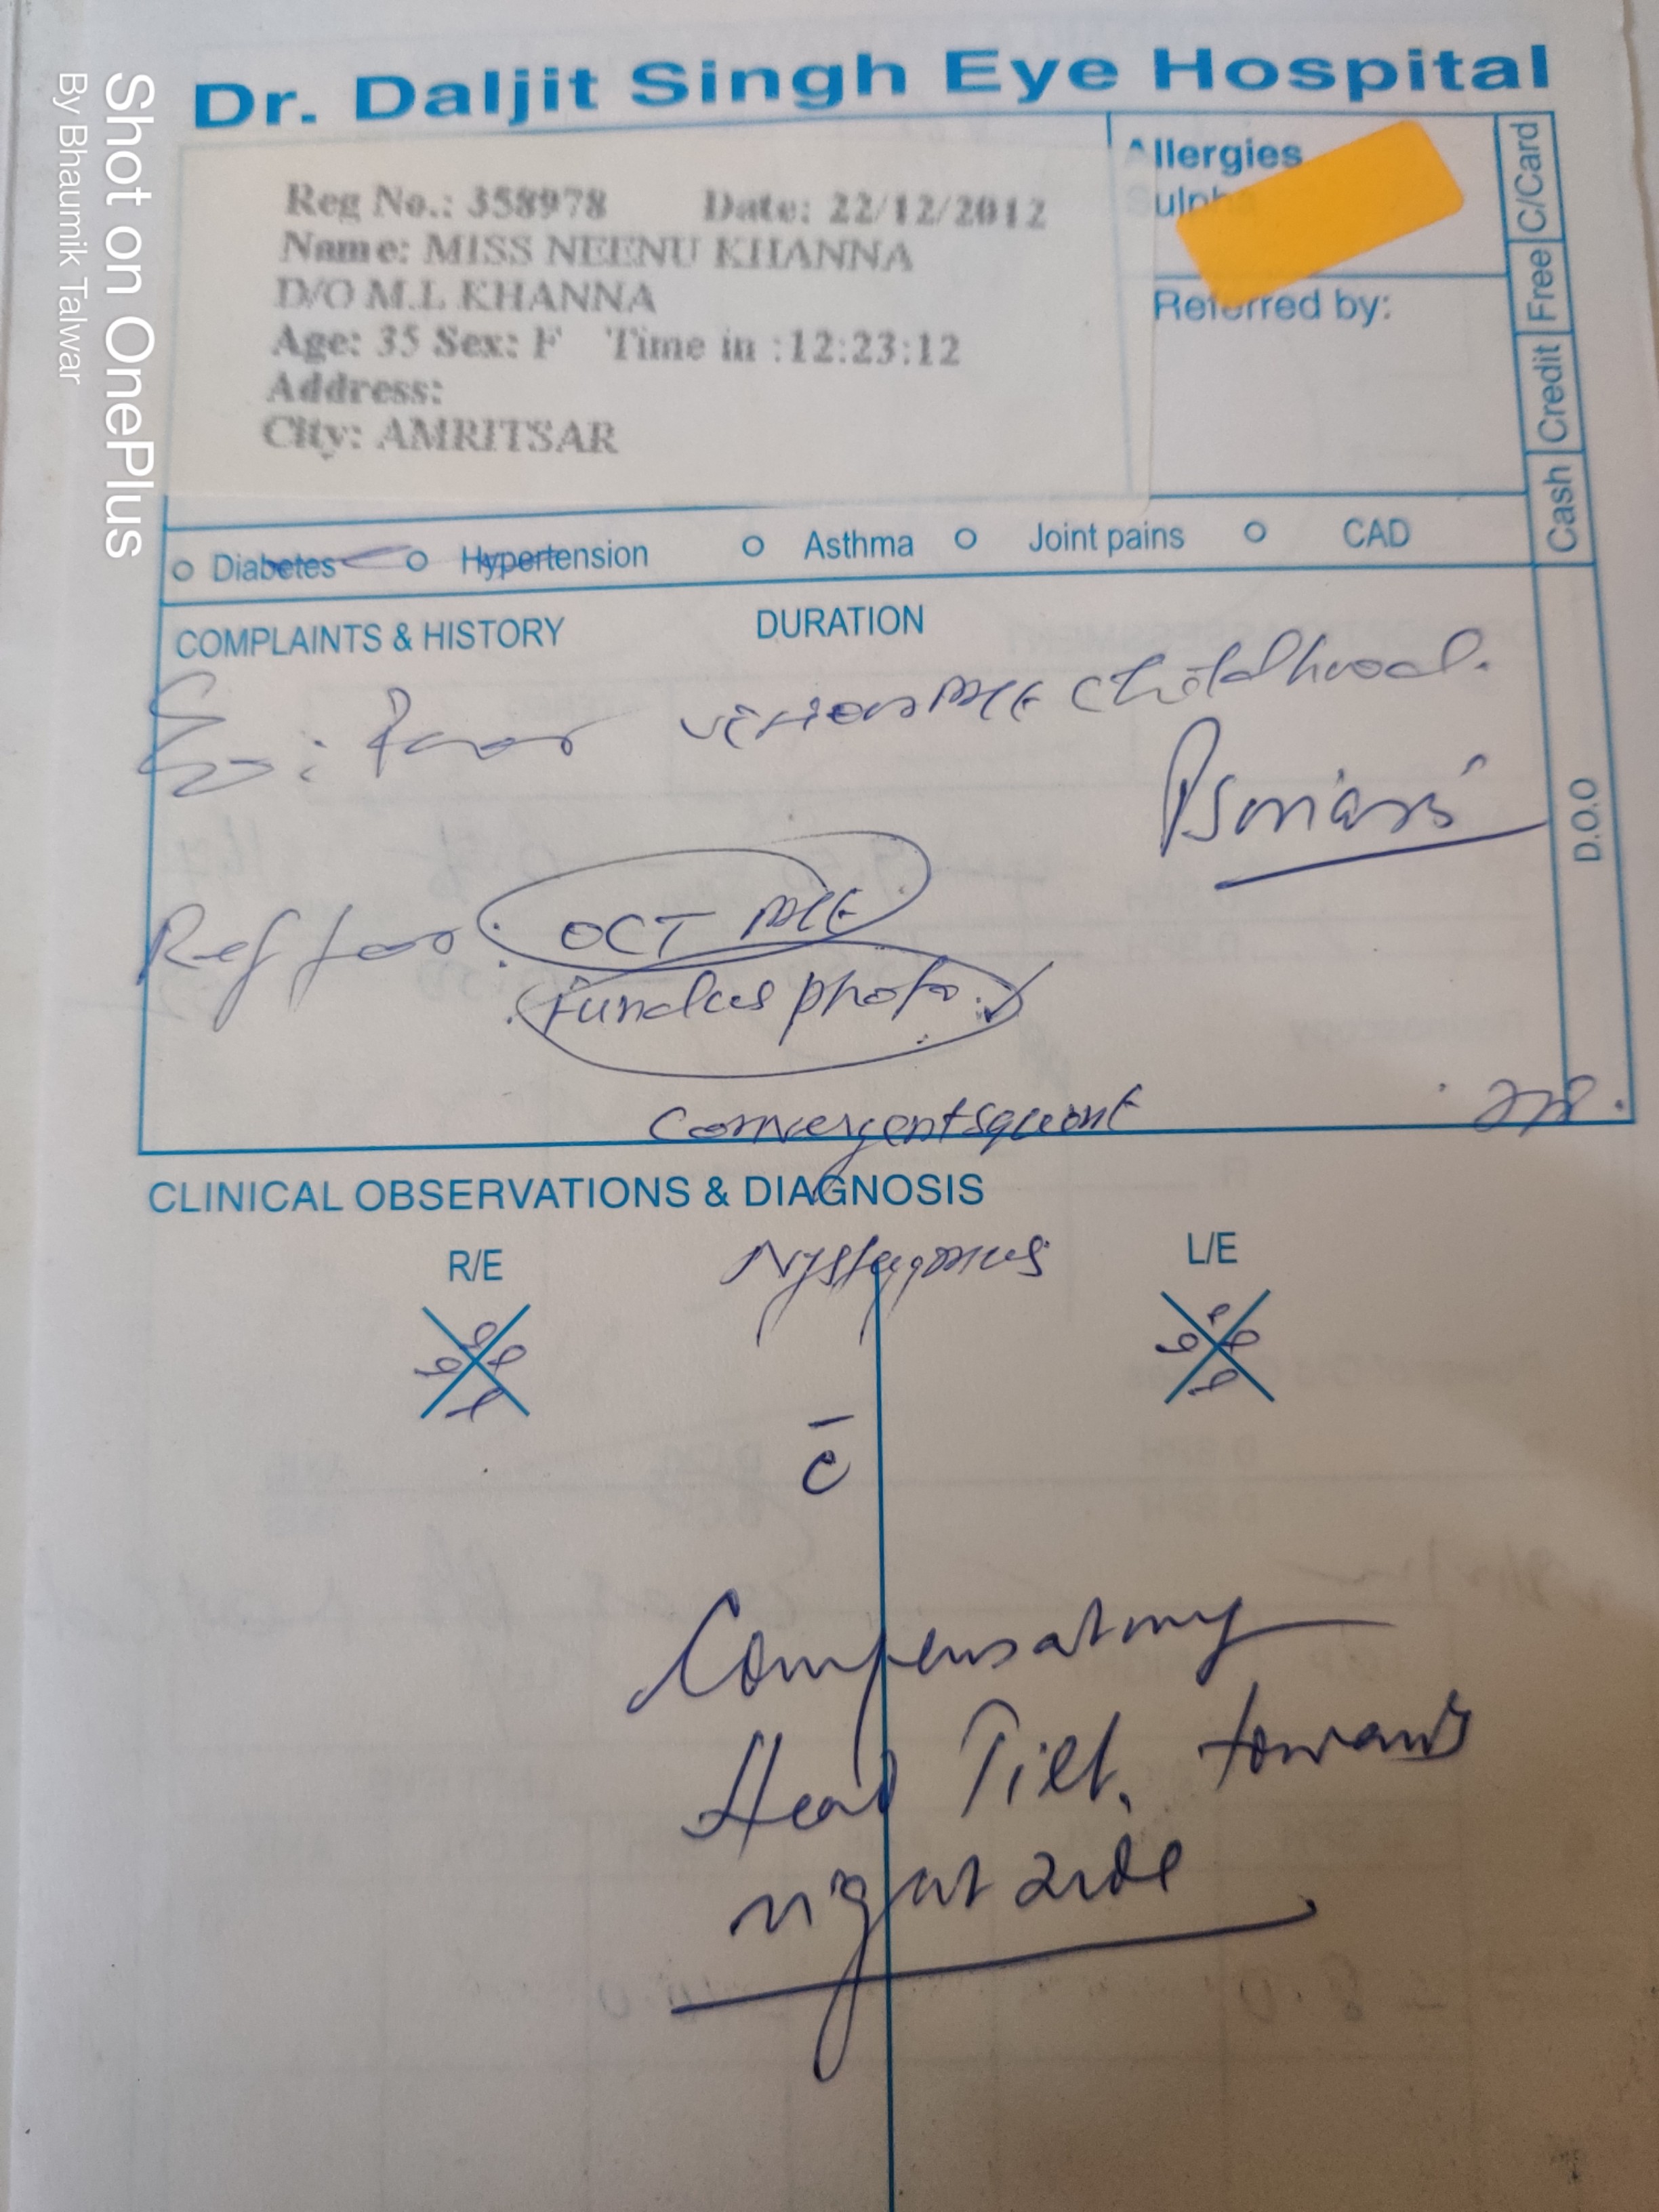 Dr. Daljit Singh Eye Hospital
Reg No.: 358978 Date: 22/12/2012
Name: MISS NEENU KHANNA
D/O M.L KHANNA
Age: 35 Sex: F Time in :12:23:12
Address:
City: AMRITSAR
Allergies
Sulpha
Referred by:
Cash Credit Free C/Card
Diabetes Hypertension Asthma Joint pains CAD
COMPLAINTS & HISTORY DURATION
D.O.O
: Poor vision childhood.
Psoriasis
Ref for OCT
Fundus photo.
Convergent squint
CLINICAL OBSERVATIONS & DIAGNOSIS
R/E Nystagmus L/E
c̄
Compensatory
Head Tilt, towards
right side
Shot on OnePlus
By Bhaumik Talwar